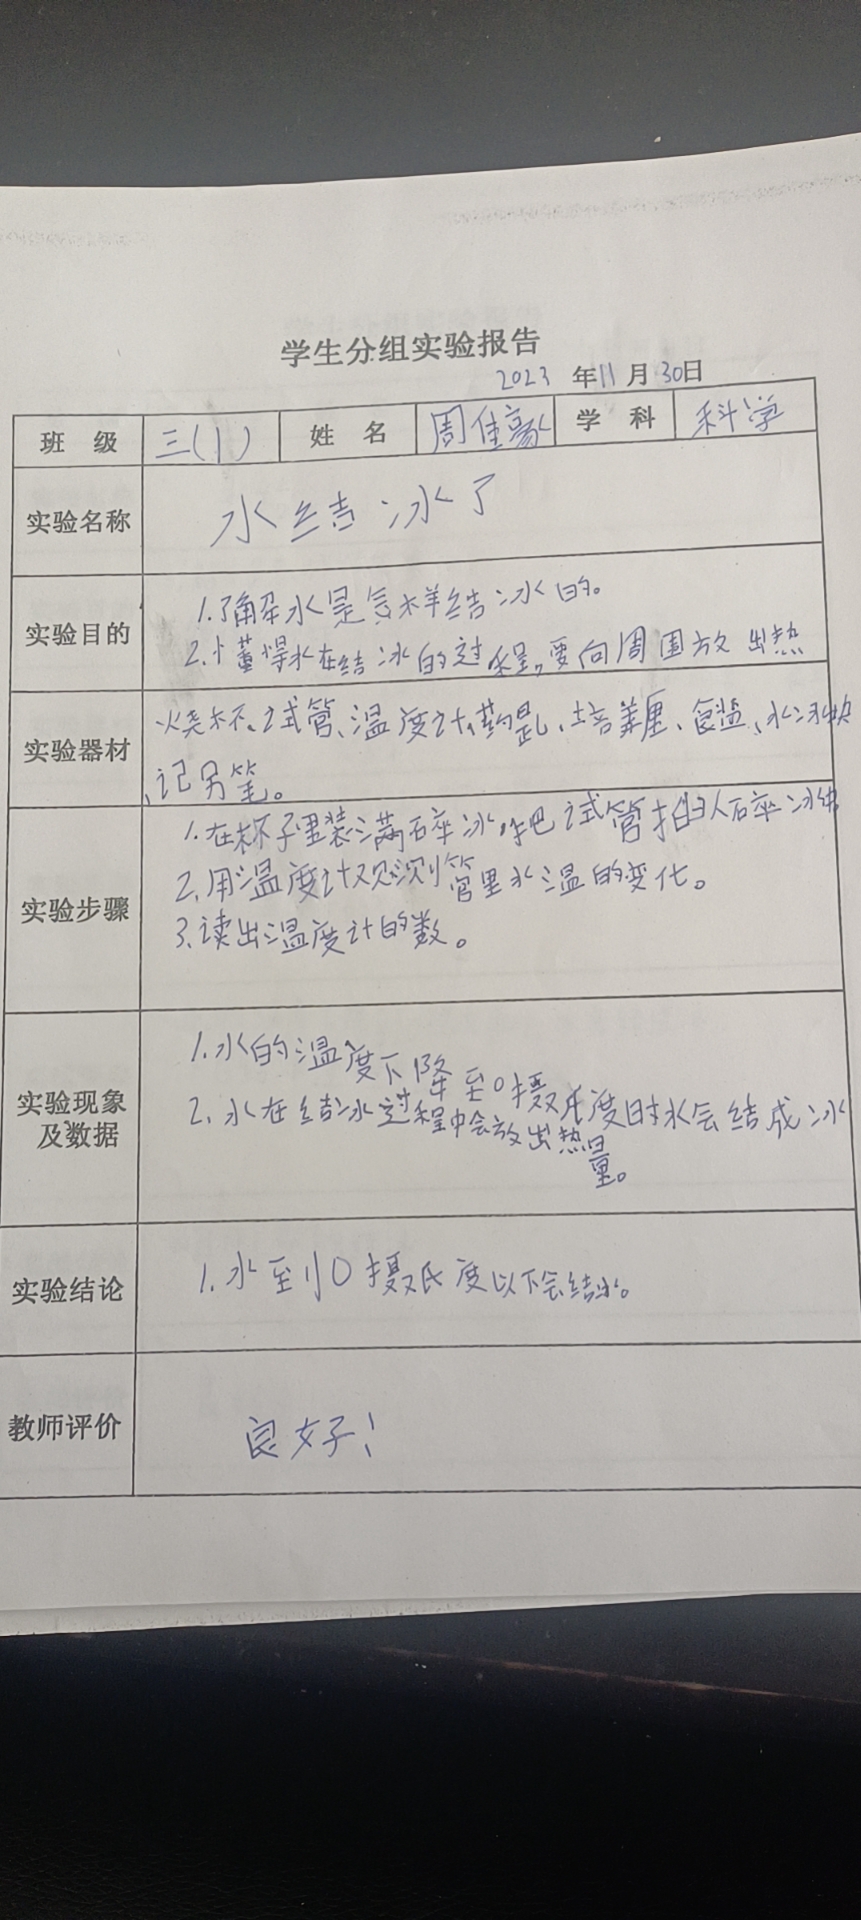 学生分组实验报告
2023 年11月30日
班 级 三(1) 姓 名 周佳 学 科 科学
实验名称 水结冰了
实验目的 1.了解水是怎样结冰的。
2.懂得水在结冰的过程,要向周围放出热
实验器材 烧杯、试管、温度计、药匙、培养皿、食盐、水、冰块
、记号笔。
实验步骤 1.在杯子里装满碎冰,把试管插入碎冰块
2.用温度计观测管里水温的变化。
3.读出温度计的数。
实验现象及数据 1.水的温度下降至0摄氏度时水会结成冰
2.水在结冰过程中会放出热量。
实验结论 1.水到0摄氏度以下会结冰。
教师评价 良好!